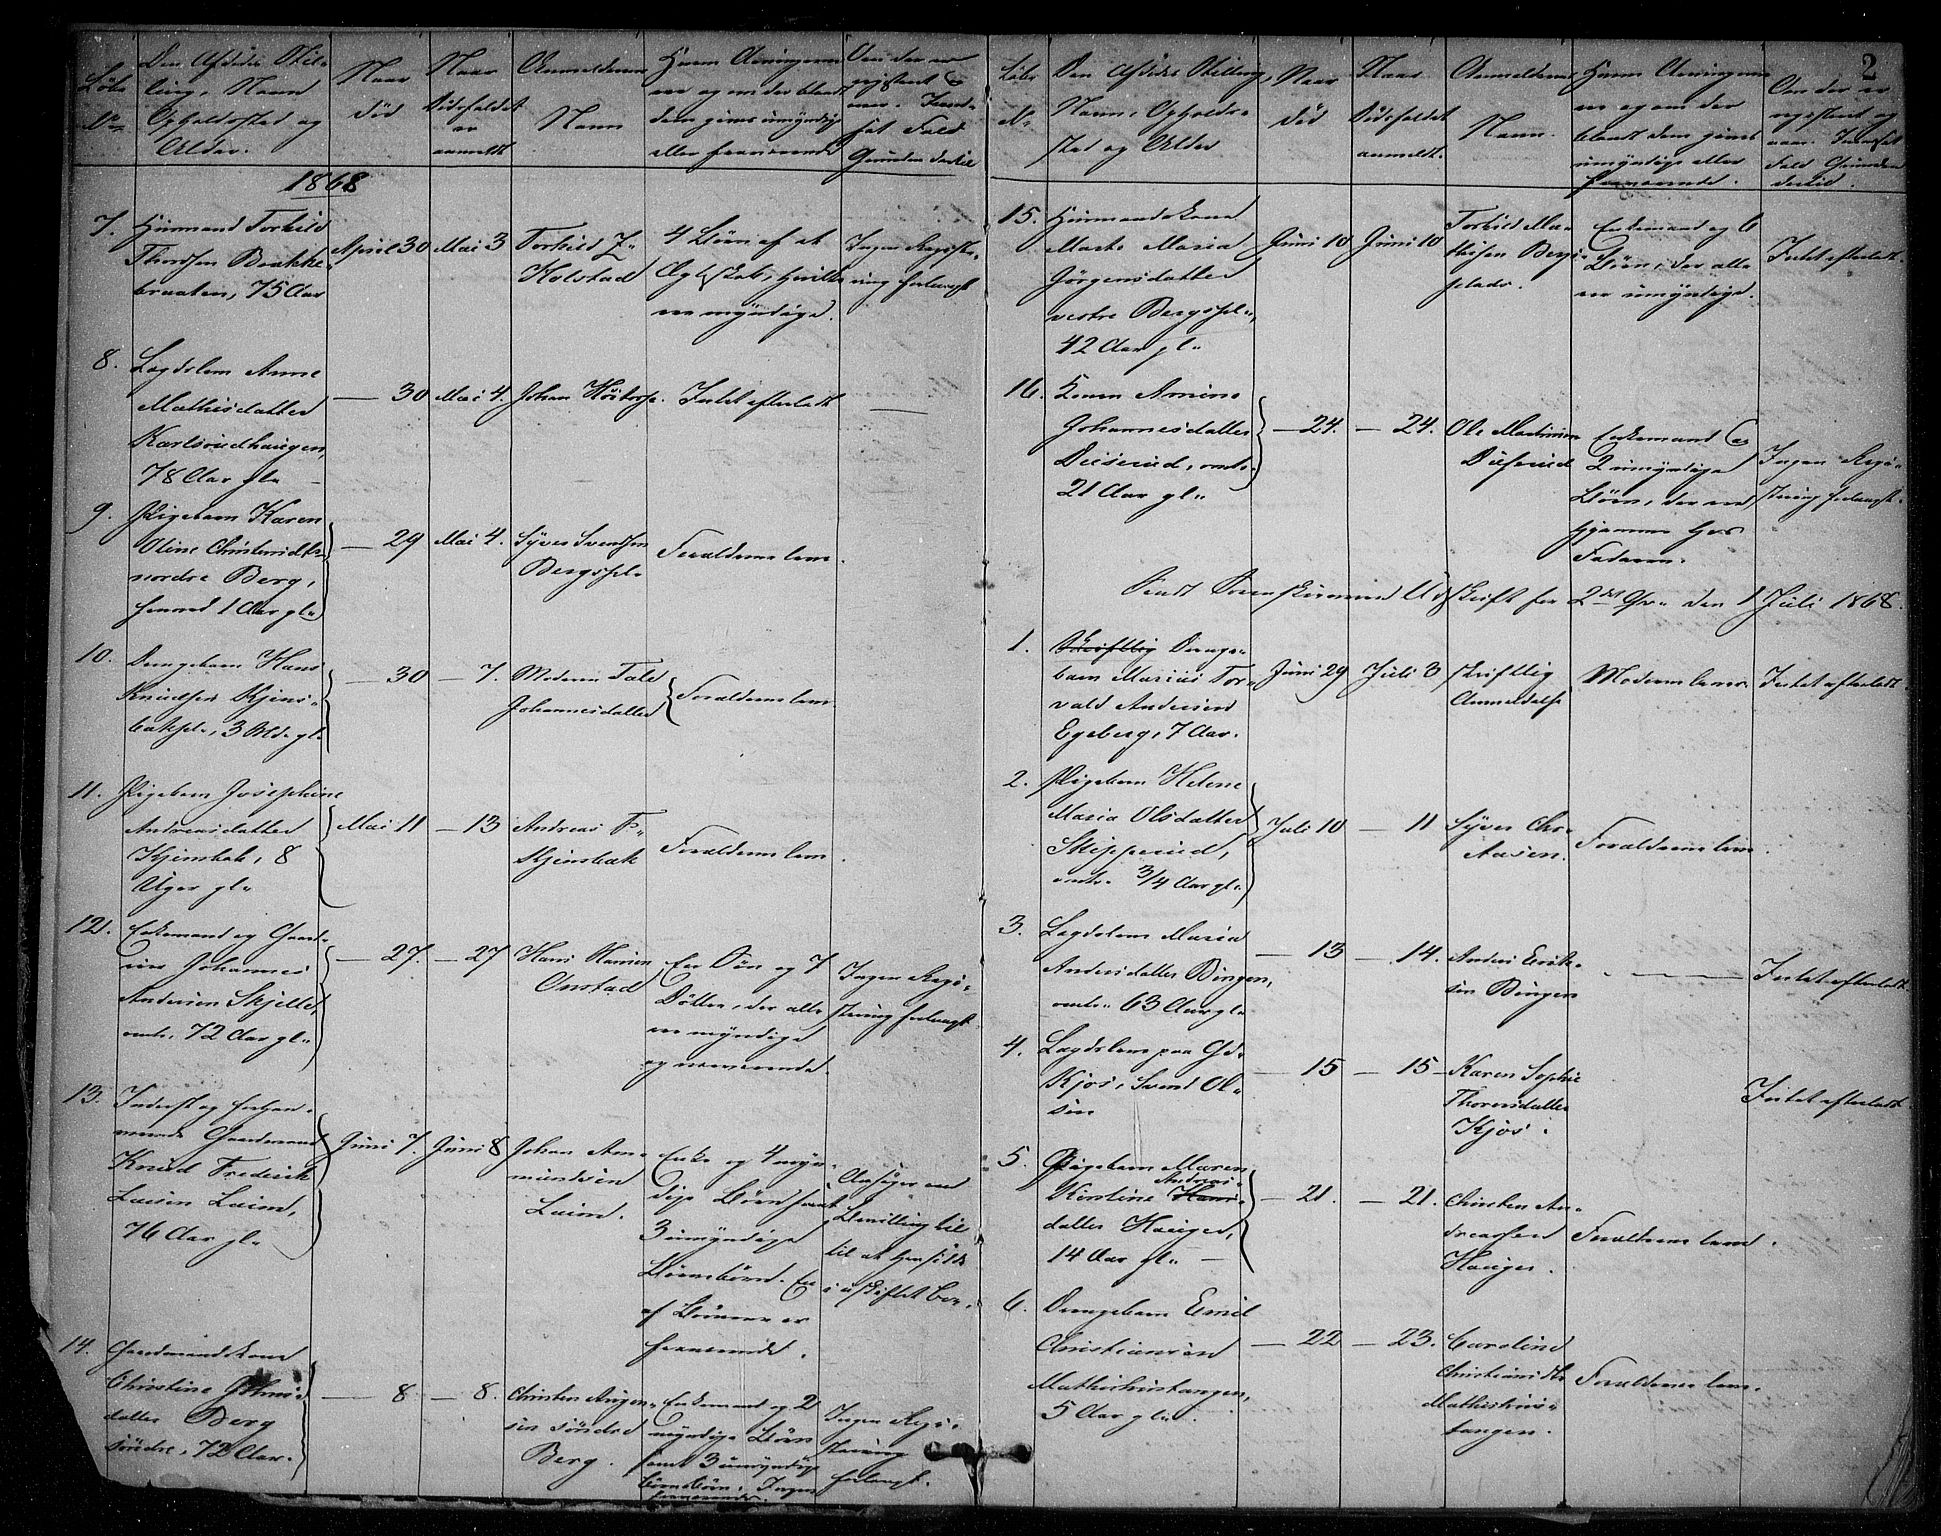 2
Løbe
No
Den Afdødes Stil-
ling, Navn
Opholdssted og
Alder.
Naar
død
Naar
Dødsfaldet
er
anmeldt
Anmelderens
Navn
Hvem Arvingerne
ere og om der blandt
dem gives umyndige
eller fraværende
Om der er
registreret og
naar. I mod-
sat Fald
Grunden dertil
1868
7.
Huusmand Torkild
Thordsen Brække-
braaten, 75 Aar
April 30
Mai 3
Torkild J"
Holstad
4 Børn af et
Ægteskab, hvilke
ere myndige.
Ingen Registre-
ring forlangt
8.
Lægdslem Anne
Mathisdatter
Karlsrudhaugen,
78 Aar gl.
— 30
Mai 4.
Johan
Intet efterladt
—
9.
Pigebarn Karen
Oline Christensdtr
nordre Berg,
1 Aar gl.
— 29
Mai 4.
Syver Svendsen
Bergspl.
Forældrene leve.
10.
Drengebarn Hans
Knudsen
3 Md. gl.
— 30
— 7.
Moderen
Johannesdatter
Forældrene leve.
11.
Pigebarn Josephine
Andreasdatter
8
Uger gl.
Mai 11
— 13
Andreas
Forældrene leve.
12.
Enkemand og Gaard-
Johannes
Andersen Skjelle,
omtr. 72 Aar gl.
— 27.
— 27
Hans Hansen
Onstad
En Søn og 7
Døttre, der alle
ere myndige
og nærværende.
Ingen Regi-
strering forlangt.
13.
Inderst og forhen-
værende Gaardmand
Knud Frederik
76 Aar gl.
Juni 7.
Juni 8
Johan Am-
mundsen
Enke og 4 myn-
dige Børn samt
3 umyndige
Børnebørn. En
af Børnene er
fraværende.
Ansøger om
Bevilling til
til at hensidde
i uskiftet Bo.
14.
Gaardmandskone
Christine
datter Berg
søndre, 72 Aar.
— 8
— 8.
Christen
søndre
Berg.
Enkemand og 2
myndige Børn
samt 3 umyndige
Børnebørn. Ingen
fraværende.
Ingen Regi-
strering
forlangt.
Løbe
N.
Den Afdødes Stilling,
Navn, Opholds-
sted og Alder
Naar
død
Naar
Dødsfaldet
anmeldt.
Anmelderens
Navn.
Hvem Arvingerne
ere og om der
blandt dem gives
umyndige eller
fraværende.
Om der er
registreret og
naar. I modsat
Fald Grunden
dertil.
15.
Huusmandskone
Marte Maria
Jörgensdatter
vestre Bergspl.,
42 Aar gl.
Juni 10
Juni 10
Torkild Ma-
thisen Bergs-
plads.
Enkemand og 6
Børn, der alle
ere umyndige.
Intet efterladt.
16.
Konen
Johannesdatter
Duserud, omtr.
21 Aar gl.
— 24.
— 24.
Ole Martinsen
Duserud
Enkemand og
2 umyndige
Børn, der ere
hjemme hos
Faderen.
Ingen Regi-
strering forlangt.
Sendt Sorenskriveren Udskrift for 2det Qv. den 1 Juli 1868.
1.
Skriftlig Drenge-
barn Marius Tor-
vald Andersen
Egeberg, 7 Aar.
Juni 29
Juli 3
skriftlig
Anmeldelse
Moderen lever.
Intet efterladt.
2.
Pigebarn Helene
Maria Olsdatter
Skipperud,
omtr. 3/4 Aar gl.
Juli 10
— 11
Syver Chr.
Aasen.
Forældrene leve.
3.
Lægdslem Maria
Andersdatter Bingen,
omtr. 63 Aar gl.
— 13
— 14.
Anders Erik-
sen Bingen
—
Intet efterladt.
4.
Lægdslem paa Gd.
Kjos, Svend Ol-
sen
— 15
— 15
Karen Sophie
Thorensdatter
Kjos.
Intet efterladt.
5.
Pigebarn Maren
Andreas-
Kirstine Hans-
datter Haugen,
14 Aar gl. —
— 21.
— 21.
Christen An-
dreassen
Haugen.
Forældrene leve.
6.
Drengebarn Emil
Christiansen
Mathishustangen,
5 Aar gl.
— 22
— 23.
Caroline
Christiansdtr
Mathishus-
tangen.
Forældrene leve.